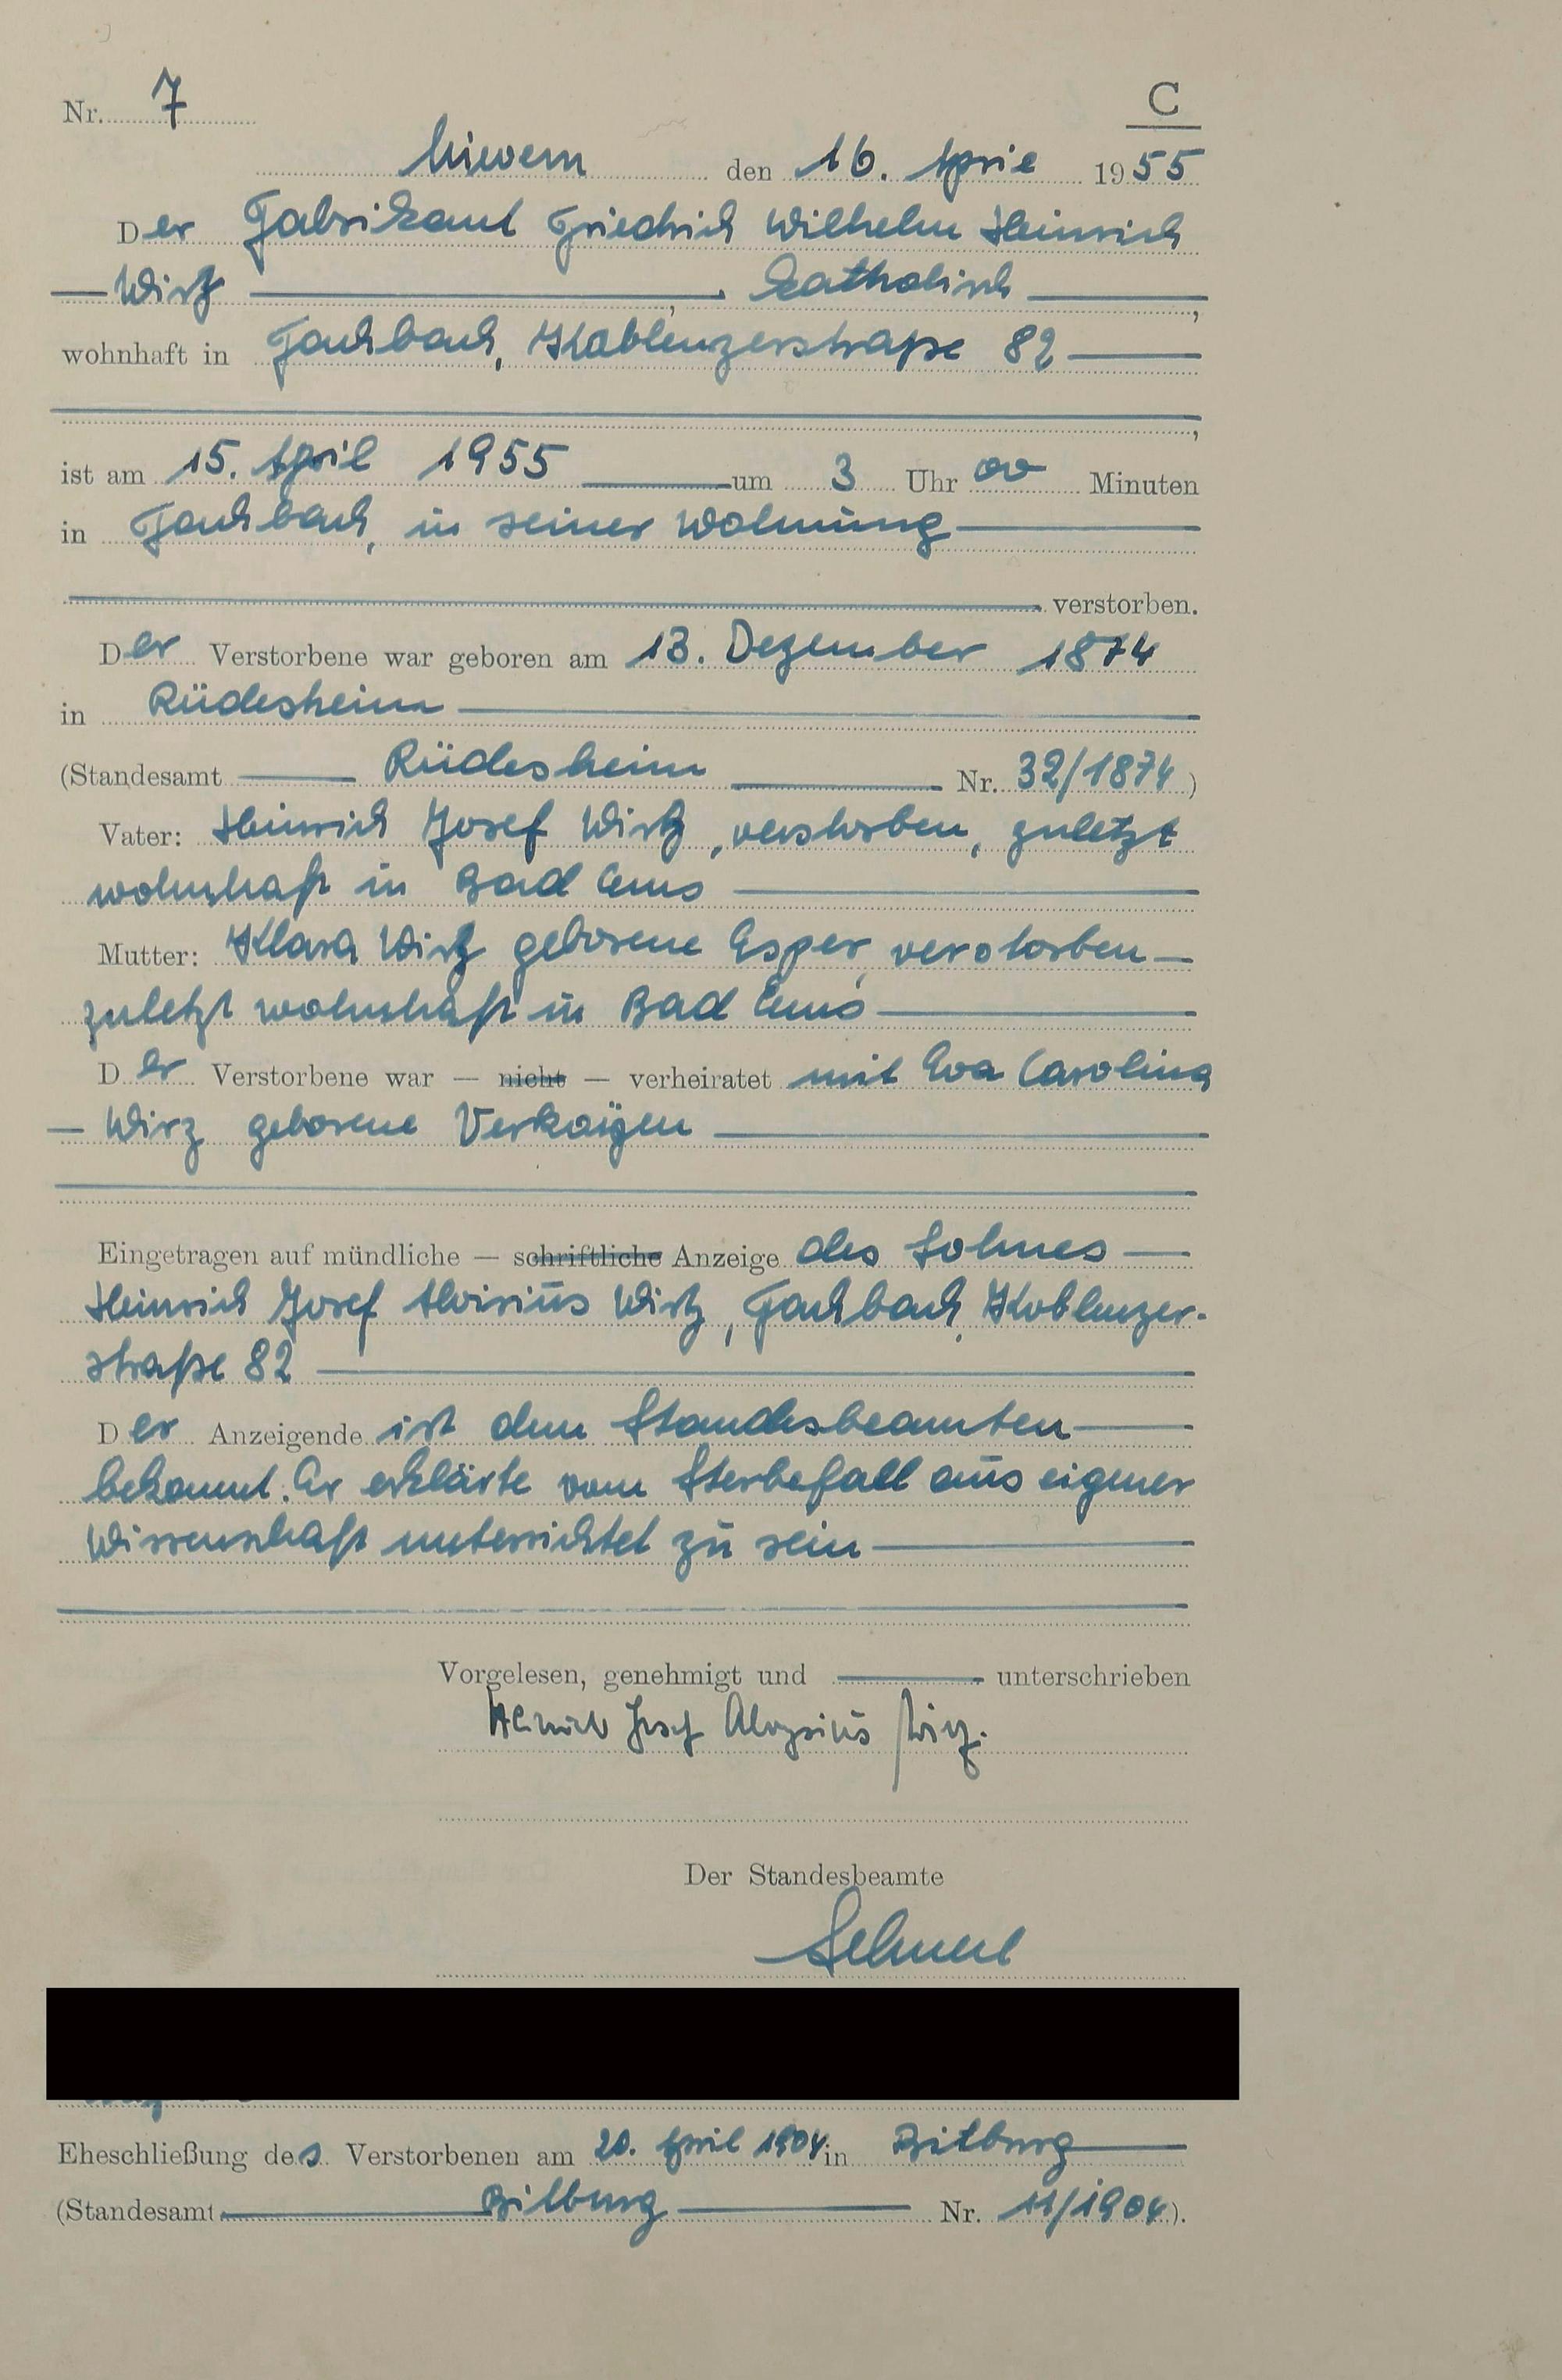 Nr. 7
C
Miesern den 16. April 1955
Der Fabrikant Friedrich Wilhelm Heinrich
Wirtz, katholisch,
wohnhaft in Fachbach, Koblenzerstraße 82
,
ist am 15. April 1955 um 3 Uhr 00 Minuten
in Fachbach, in seiner Wohnung
verstorben.
Der Verstorbene war geboren am 13. Dezember 1874
in Rüdesheim
(Standesamt Rüdesheim Nr. 32/1874)
Vater: Heinrich Josef Wirtz, verstorben, zuletzt
wohnhaft in Bad Ems
Mutter: Klara Wirtz geborene Esper, verstorben
zuletzt wohnhaft in Bad Ems
Der Verstorbene war — nicht — verheiratet mit Eva Carolina
Wirz geborene Verkoÿen
Eingetragen auf mündliche — schriftliche Anzeige des Sohnes
Heinrich Josef Aloisius Wirtz, Fachbach, Koblenzer-
straße 82
Der Anzeigende ist dem Standesbeamten
bekannt. Er erklärte vom Sterbefall aus eigener
Wissenschaft unterrichtet zu sein
Vorgelesen, genehmigt und unterschrieben
Heinrich Josef Aloysius Wirz.
Der Standesbeamte
Eheschließung des Verstorbenen am 20. April 1904 in Bitburg
(Standesamt Bitburg Nr. 11/1904).